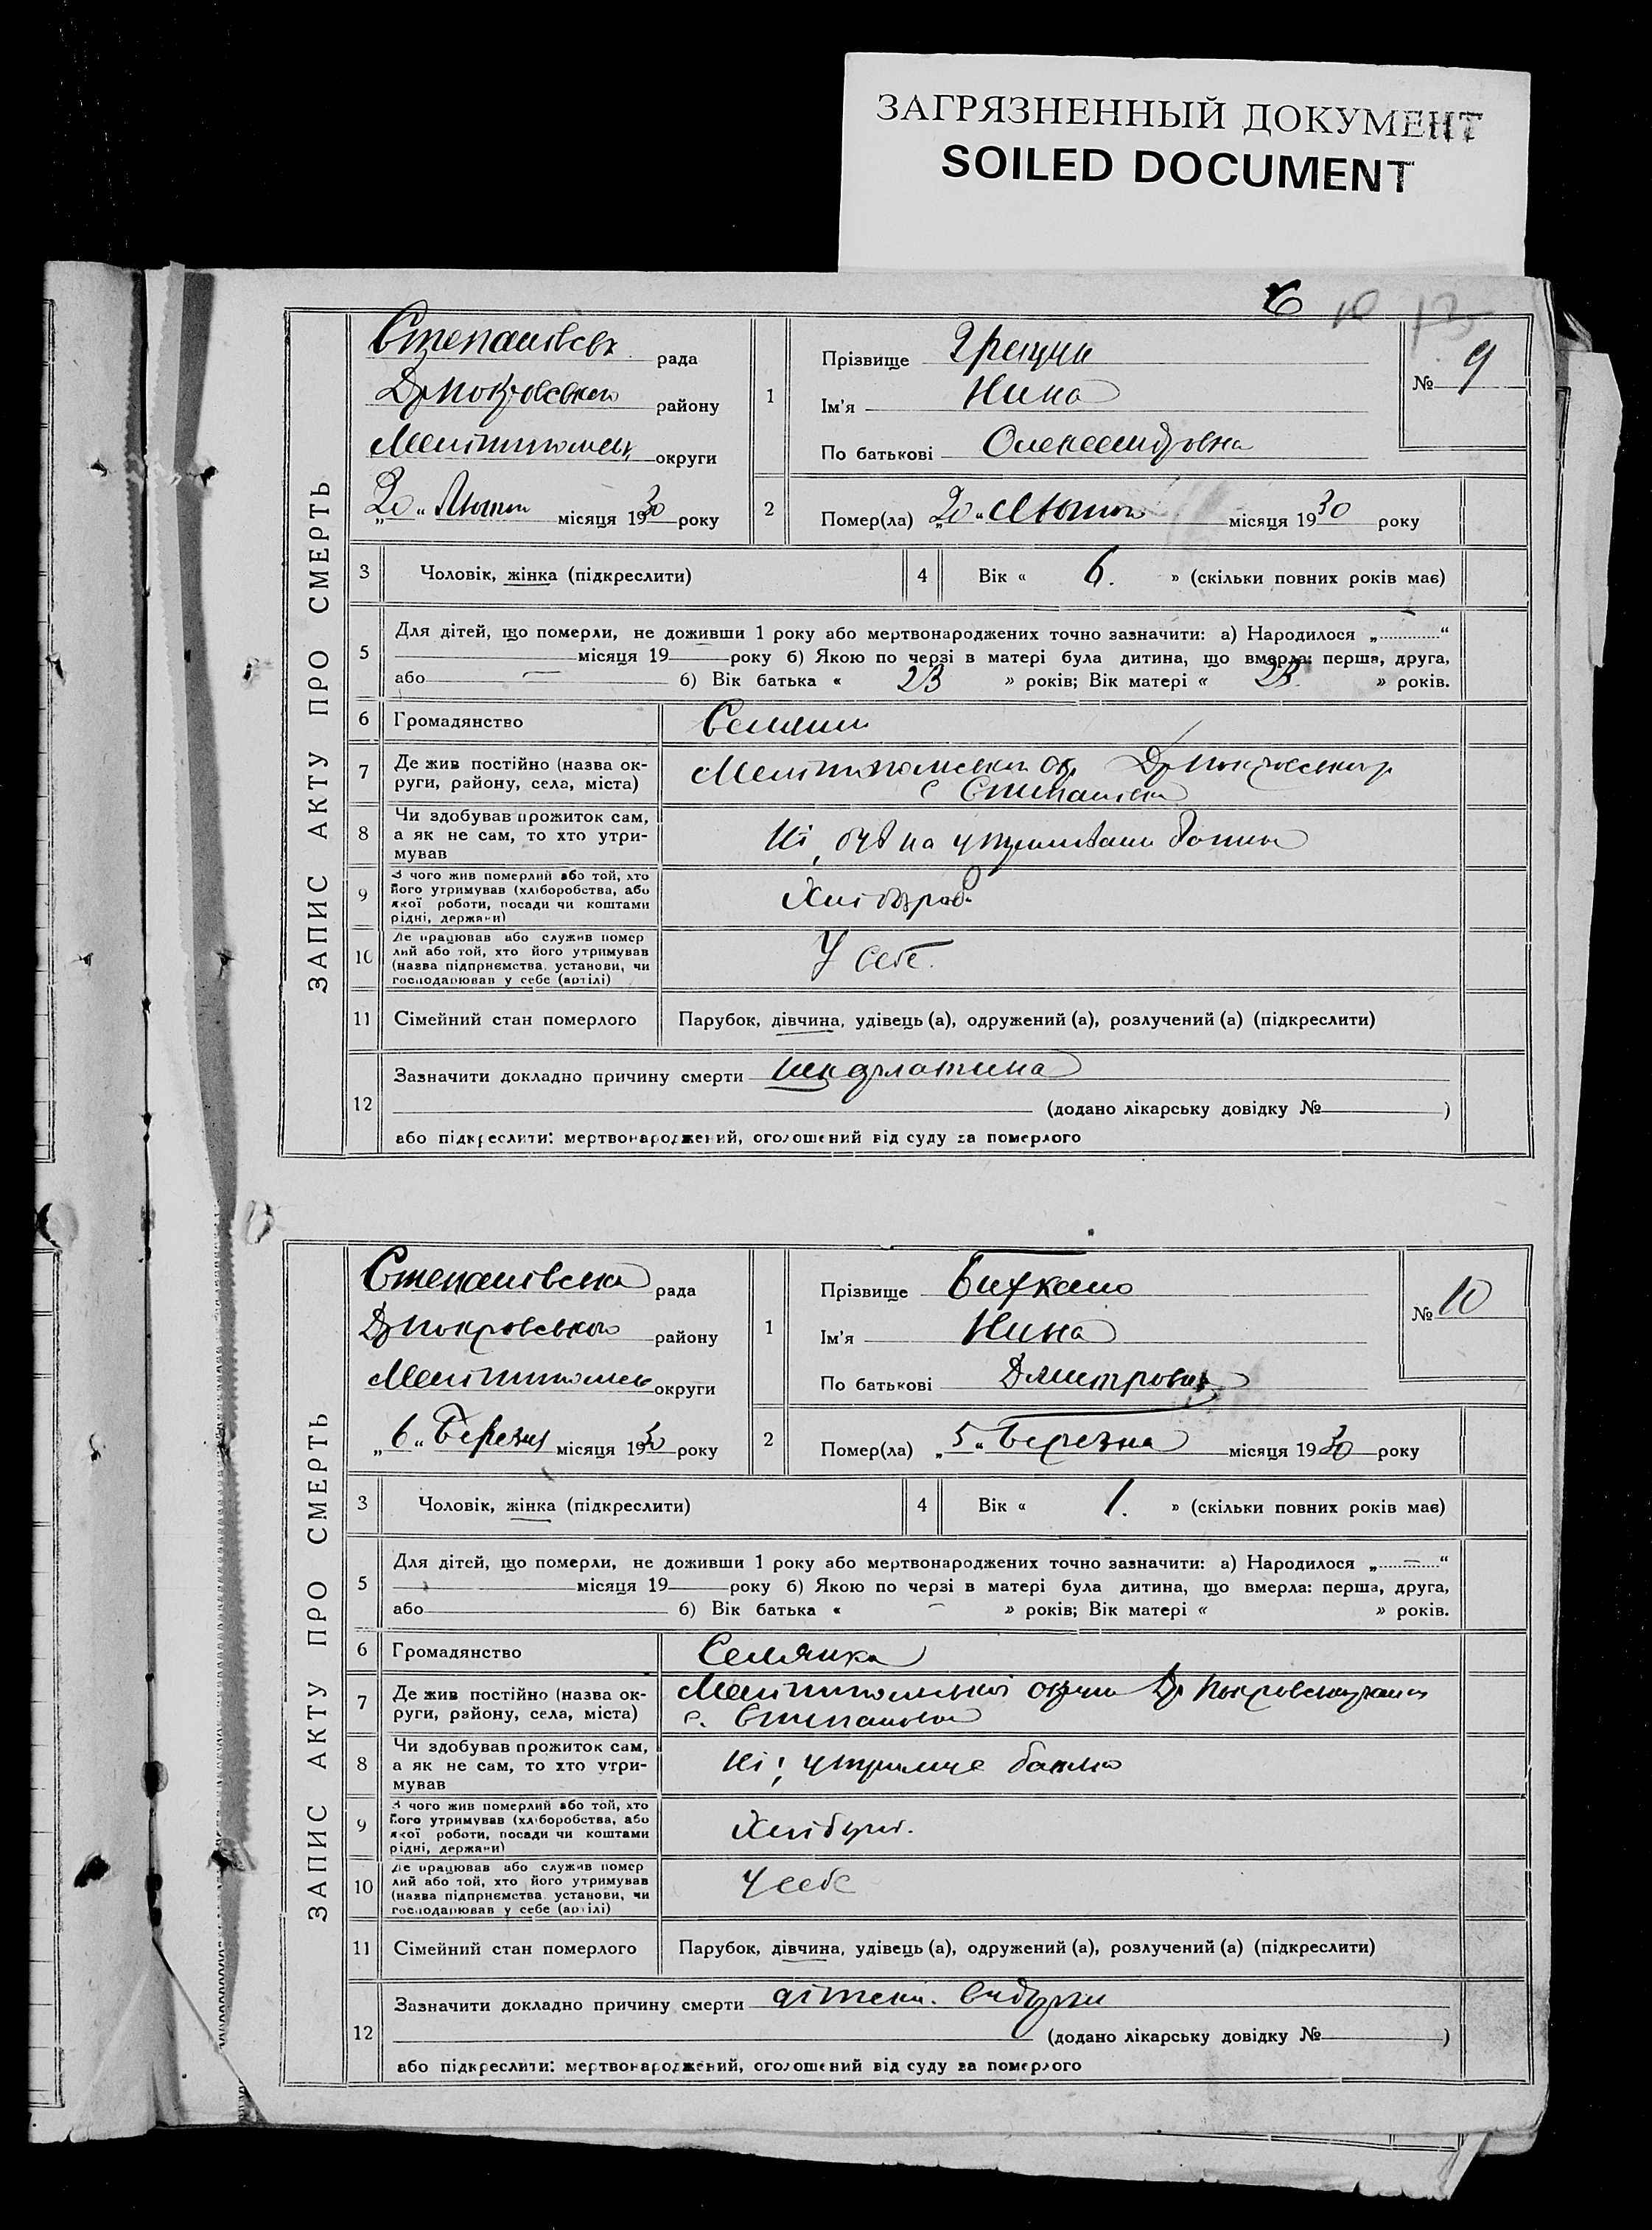 ЗАГРЯЗНЕННЫЙ ДОКУМЕНТ
SOILED DOCUMENT
6 10
ЗАПИС АКТУ ПРО СМЕРТЬ
Степанівськ рада
Др Покровського району
Мелітопольськ округи
„20“ Лютого місяця 1930 року
1
Прізвище
Ім'я Нина
По батькові Олександровна
№ 9
2
Помер(ла) „20“ Лютого місяця 1930 року
3 Чоловік, жінка (підкреслити)
4 Вік « 6. » (скільки повних років має)
5
Для дітей, що померли, не доживши 1 року або мертвонароджених точно зазначити: а) Народилося „ “
місяця 19 року б) Якою по черзі в матері була дитина, що вмерла: перша, друга,
або — б) Вік батька « 23 » років; Вік матері « 23 » років.
6 Громадянство
7 Де жив постійно (назва ок-
руги, району, села, міста)
Мелітопольська ок. Др Покровського р
с Степанівка
8 Чи здобував прожиток сам,
а як не сам, то хто утри-
мував
Ні, був на утриманні
9 З чого жив померлий або той, хто
його утримував (хліборобства, або
якої роботи, посади чи коштами
рідні, держави)
Хлібороб.
10 Де працював або служив помер
лий або той, хто його утримував
(назва підприємства, установи, чи
господарював у себе (артілі)
У себе.
11 Сімейний стан померлого Парубок, дівчина, удівець (а), одружений (а), розлучений (а) (підкреслити)
12
Зазначити докладно причину смерти шкарлатина
(додано лікарську довідку № )
або підкреслити: мертвонароджений, оголошений від суду за померлого
ЗАПИС АКТУ ПРО СМЕРТЬ
Степанівська рада
Др Покровського району
Мелітопольськ округи
„6“ Березня місяця 1930 року
1
Прізвище
Ім'я Нина
По батькові Дмитровна
№ 10
2
Помер(ла) „5“ Березня місяця 1930 року
3 Чоловік, жінка (підкреслити)
4 Вік « 1. » (скільки повних років має)
5
Для дітей, що померли, не доживши 1 року або мертвонароджених точно зазначити: а) Народилося „—“
місяця 19 року б) Якою по черзі в матері була дитина, що вмерла: перша, друга,
або б) Вік батька « — » років; Вік матері « » років.
6 Громадянство Селянка
7 Де жив постійно (назва ок-
руги, району, села, міста)
Мелітопольської округи Др Покровськ району
с. Степановка
8 Чи здобував прожиток сам,
а як не сам, то хто утри-
мував
Ні! утримує батько
9 З чого жив померлий або той, хто
його утримував (хліборобства, або
якої роботи, посади чи коштами
рідні, держави)
10 Де працював або служив помер
лий або той, хто його утримував
(назва підприємства, установи, чи
господарював у себе (артілі)
У себе
11 Сімейний стан померлого Парубок, дівчина, удівець (а), одружений (а), розлучений (а) (підкреслити)
12
Зазначити докладно причину смерти
(додано лікарську довідку № )
або підкреслити: мертвонароджений, оголошений від суду за померлого